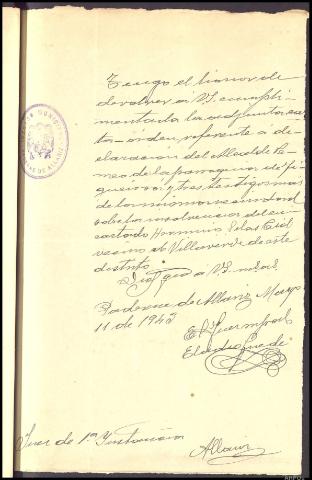 Tengo el honor de
devolver á VS. cumpli-
mentada la adjunta car-
ta-órden, referente a de-
claracion del Alcalde Pe-
daneo de la parroquia de Fi-
gueiroa y tres testigos mas
de la misma vecindad
sobre la insolvencia del en-
cartado
vecino de Villaverde de este
distrito.
Dios gue a VS. m. as.
Paderne de Allariz Mayo
11 de 1943
El Juez mpal
Eladio
Juez de 1ª Instancia
Allariz